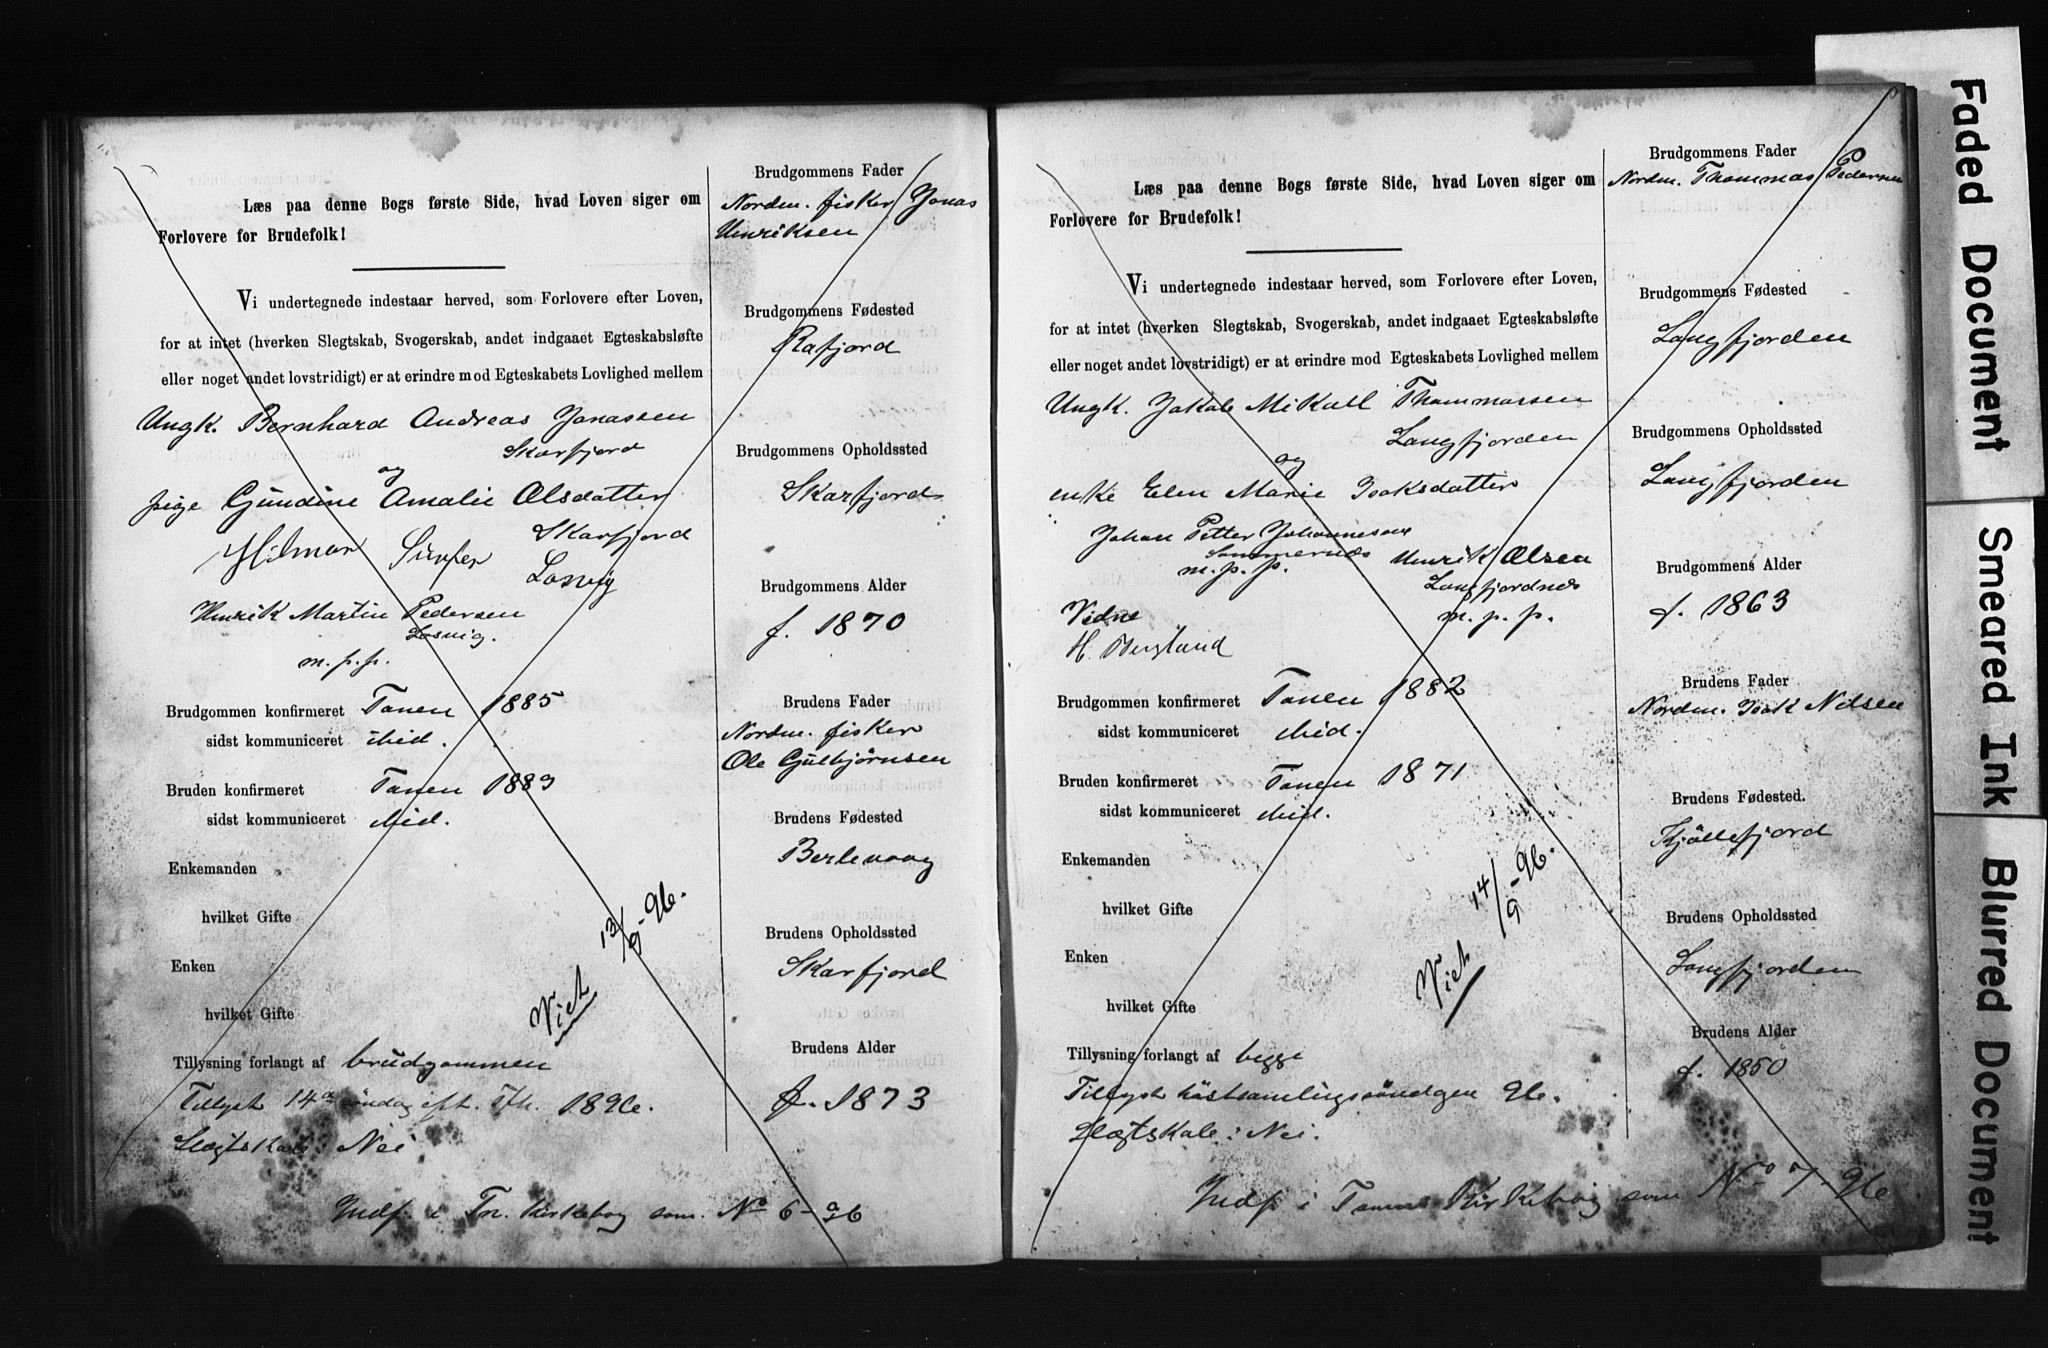 Læs paa denne Bogs første Side, hvad Loven siger om
Forlovere for Brudefolk!
Vi undertegnede indestaar herved, som Forlovere efter Loven,
for at intet (hverken Slegtskab, Svogerskab, andet indgaaet Egteskabsløfte
eller noget andet lovstridigt) er at erindre mod Egteskabets Lovlighed mellem
Ungk. Bernhard Andreas Jonassen
Skarfjord
og
pige Gundine Amalie Olsdatter
Skarfjord
Hilmar
Losvig
Henrik Martin Pedersen
Losvig.
m.p.p.
Brudgommen konfirmeret Tanen 1885
sidst kommuniceret ibid.
Bruden konfirmeret Tanen 1889
sidst kommuniceret ibid.
Enkemanden
hvilket Gifte
Enken
hvilket Gifte
Viet 13/9-96.
Tillysning forlangt af brudgommen
Tillyst 14de søndag eft. Tr. 1896.
Slægtskab: Nei
Indf. i Tn. kirkebog som No 6-96
Brudgommens Fader
Nordm. fisker Jonas
Henriksen
Brudgommens Fødested
Rafjord
Brudgommens Opholdssted
Skarfjord
Brudgommens Alder
f. 1870
Brudens Fader
Nordm. fisker
Ole Gulbjörnsen
Brudens Fødested
Berlevaag
Brudens Opholdssted
Skarfjord
Brudens Alder
f. 1873
Læs paa denne Bogs første Side, hvad Loven siger om
Forlovere for Brudefolk!
Vi undertegnede indestaar herved, som Forlovere efter Loven,
for at intet (hverken Slegtskab, Svogerskab, andet indgaaet Egteskabsløfte
eller noget andet lovstridigt) er at erindre mod Egteskabets Lovlighed mellem
Ungk. Jakob Mikall Thommassen
Langfjorden
og
enke Elen Marie Isaksdatter
Johan Petter Johannesen
Sommernæs
m.p.p.
Henrik Olsen
Langfjordnæs
m.p.p.
Vidne
H. Bergland
Brudgommen konfirmeret Tanen 1882
sidst kommuniceret ibid.
Bruden konfirmeret Tanen 1871
sidst kommuniceret ibid.
Enkemanden
hvilket Gifte
Enken
hvilket Gifte
Viet 14/9-96.
Tillysning forlangt af begge
Tillyst höstsamlingssöndgen 96.
Slægtskab: Nei.
Indf. i Tanens Kirkebog som No 7-96
Brudgommens Fader
Nordm. Thommas Pedersen
Brudgommens Fødested
Langfjorden
Brudgommens Opholdssted
Langfjorden
Brudgommens Alder
f. 1863
Brudens Fader
Nordm. Isak Nilsen
Brudens Fødested.
Kjöllefjord
Brudens Opholdssted
Langfjorden
Brudens Alder
f. 1850
Faded Document
Smeared Ink
Blurred Document